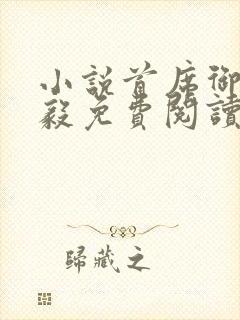 小說首席御
毅免費閱讀
歸藏之